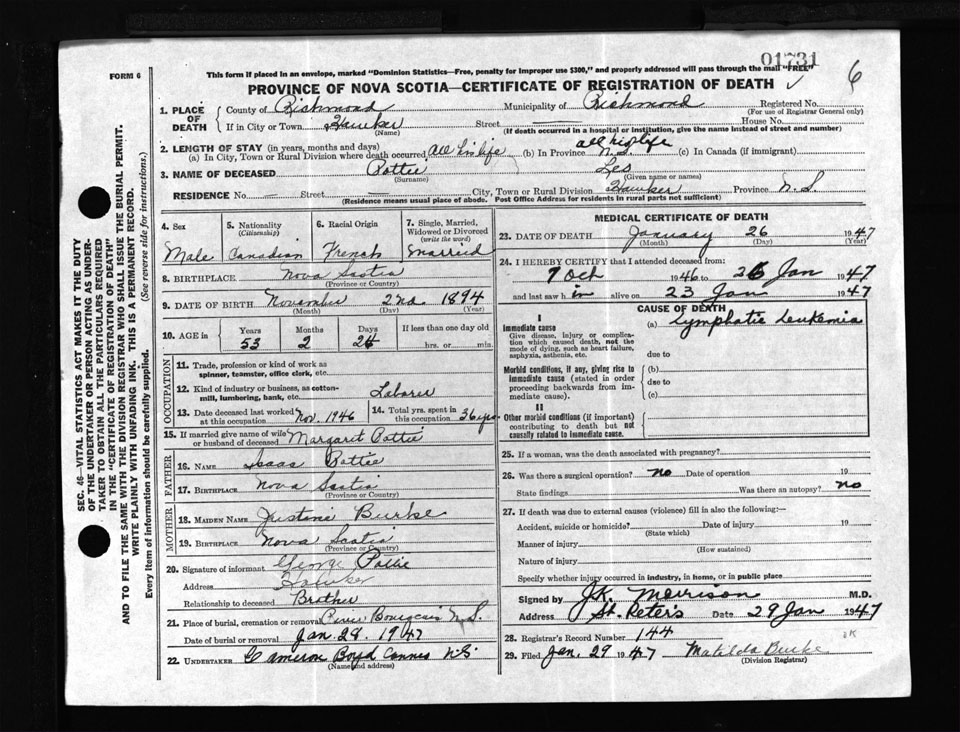 01731
6
FORM 6
This form if placed in an envelope, marked "Dominion Statistics—Free, penalty for improper use $300," and properly addressed will pass through the mail "FREE"
PROVINCE OF NOVA SCOTIA—CERTIFICATE OF REGISTRATION OF DEATH
1. PLACE OF DEATH County of Richmond Municipality of Richmond Registered No.
(For use of Registrar General only)
If in City or Town Hawker Street House No.
(Name) (If death occurred in a hospital or institution, give the name instead of street and number)
2. LENGTH OF STAY (in years, months and days)
(a) In City, Town or Rural Division where death occurred all his life (b) In Province all his life N.S. (c) In Canada (if immigrant)
3. NAME OF DECEASED Pottie Les
(Surname) (Given name or names)
RESIDENCE No. — Street City, Town or Rural Division Hawker Province N.S.
(Residence means usual place of abode. Post Office Address for residents in rural parts not sufficient)
4. Sex Male
5. Nationality (Citizenship) Canadian
6. Racial Origin French
7. Single, Married, Widowed or Divorced (write the word) Married
8. BIRTHPLACE Nova Scotia
(Province or Country)
9. DATE OF BIRTH November 2nd 1894
(Month) (Day) (Year)
10. AGE in Years 53 Months 2 Days 24 If less than one day old hrs. or min.
OCCUPATION
11. Trade, profession or kind of work as spinner, teamster, office clerk, etc.
12. Kind of industry or business, as cotton-mill, lumbering, bank, etc. Laborer
13. Date deceased last worked at this occupation Nov. 1946
14. Total yrs. spent in this occupation 36 yrs
15. If married give name of wife or husband of deceased Margaret Pottie
FATHER
16. NAME Isaas Pottie
17. BIRTHPLACE Nova Scotia
(Province or Country)
MOTHER
18. MAIDEN NAME Justine Burke
19. BIRTHPLACE Nova Scotia
(Province or Country)
20. Signature of informant George Pottie
Address Hawker
Relationship to deceased Brother
21. Place of burial, cremation or removal N.S.
Date of burial or removal Jan. 28. 1947
22. UNDERTAKER Cameron Boyd Cannes N.S.
(Name and address)
MEDICAL CERTIFICATE OF DEATH
23. DATE OF DEATH January 26 1947
(Month) (Day) (Year)
24. I HEREBY CERTIFY that I attended deceased from:
7 Oct 1946 to 26 Jan 1947
and last saw h im alive on 23 Jan 1947
CAUSE OF DEATH
I
Immediate cause
Give disease, injury or complication which caused death, not the mode of dying, such as heart failure, asphyxia, asthenia, etc.
(a) Lymphatic Leukemia
due to
Morbid conditions, if any, giving rise to immediate cause (stated in order proceeding backwards from immediate cause).
(b)
due to
(c)
II
Other morbid conditions (if important) contributing to death but not causally related to immediate cause.
25. If a woman, was the death associated with pregnancy?
26. Was there a surgical operation? no Date of operation 19
State findings Was there an autopsy? no
27. If death was due to external causes (violence) fill in also the following:—
Accident, suicide or homicide? Date of injury 19
(State which)
Manner of injury
(How sustained)
Nature of injury
Specify whether injury occurred in industry, in home, or in public place
Signed by J.K. Morrison M.D.
Address St. Peter's Date 29 Jan 1947
28. Registrar's Record Number 144
29. Filed Jan. 29 1947 Matilda Burke
(Division Registrar)
SEC. 46—VITAL STATISTICS ACT MAKES IT THE DUTY
OF THE UNDERTAKER OR PERSON ACTING AS UNDER-
TAKER TO OBTAIN ALL THE PARTICULARS REQUIRED
IN THE "CERTIFICATE OF REGISTRATION OF DEATH"
AND TO FILE THE SAME WITH THE DIVISION REGISTRAR WHO SHALL ISSUE THE BURIAL PERMIT.
WRITE PLAINLY WITH UNFADING INK. THIS IS A PERMANENT RECORD.
Every item of information should be carefully supplied. (See reverse side for instructions.)